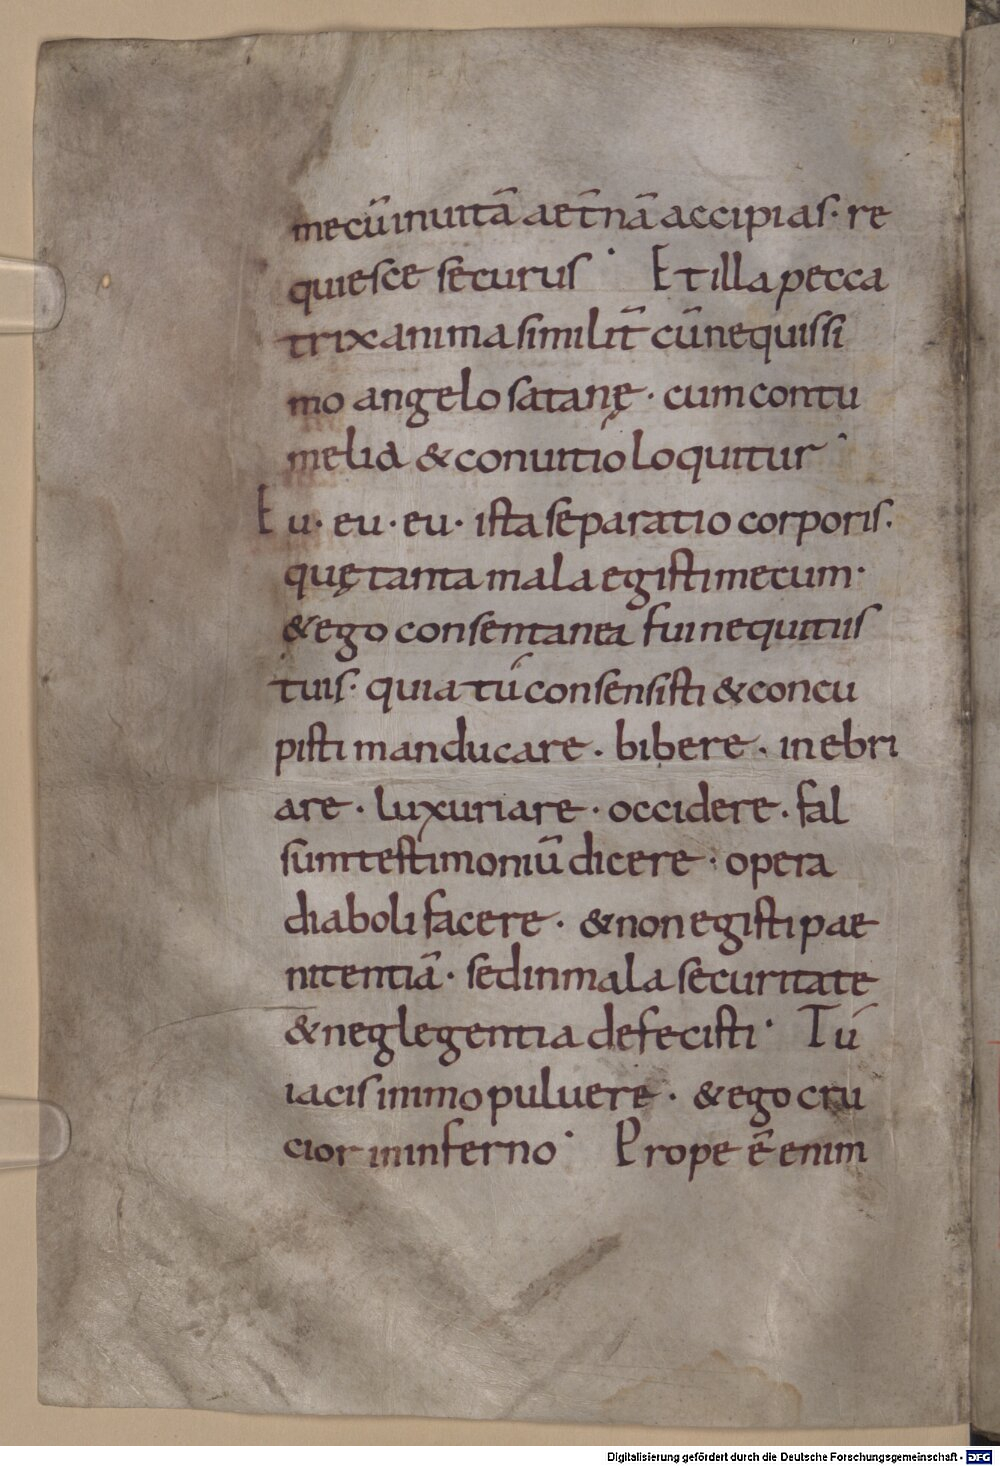 mecū inuitā aet̄nā accipias· re
quiesce securus· Et illa pecca
trix anima similit̄ cū nequissi
mo angelo satanę· cum contu
melia & conuitio loquitur·
Eu· eu· eu· ista separatio corporis·
quę tanta mala egisti mecum·
& ego consentanea fui nequitiis
tuis· quia tú consensisti & concu
pisti manducare· bibere· inebri
are· luxuriare· occidere· fal
sum testimoniū dicere· opera
diaboli facere· & non egisti pae
nitentiā· sed in mala securitate
& neglegentia defecisti· Tú
iacis in mo puluere· & ego cru
cior in inferno· Prope ē enim
Digitalisierung gefördert durch die Deutsche Forschungsgemeinschaft - DFG